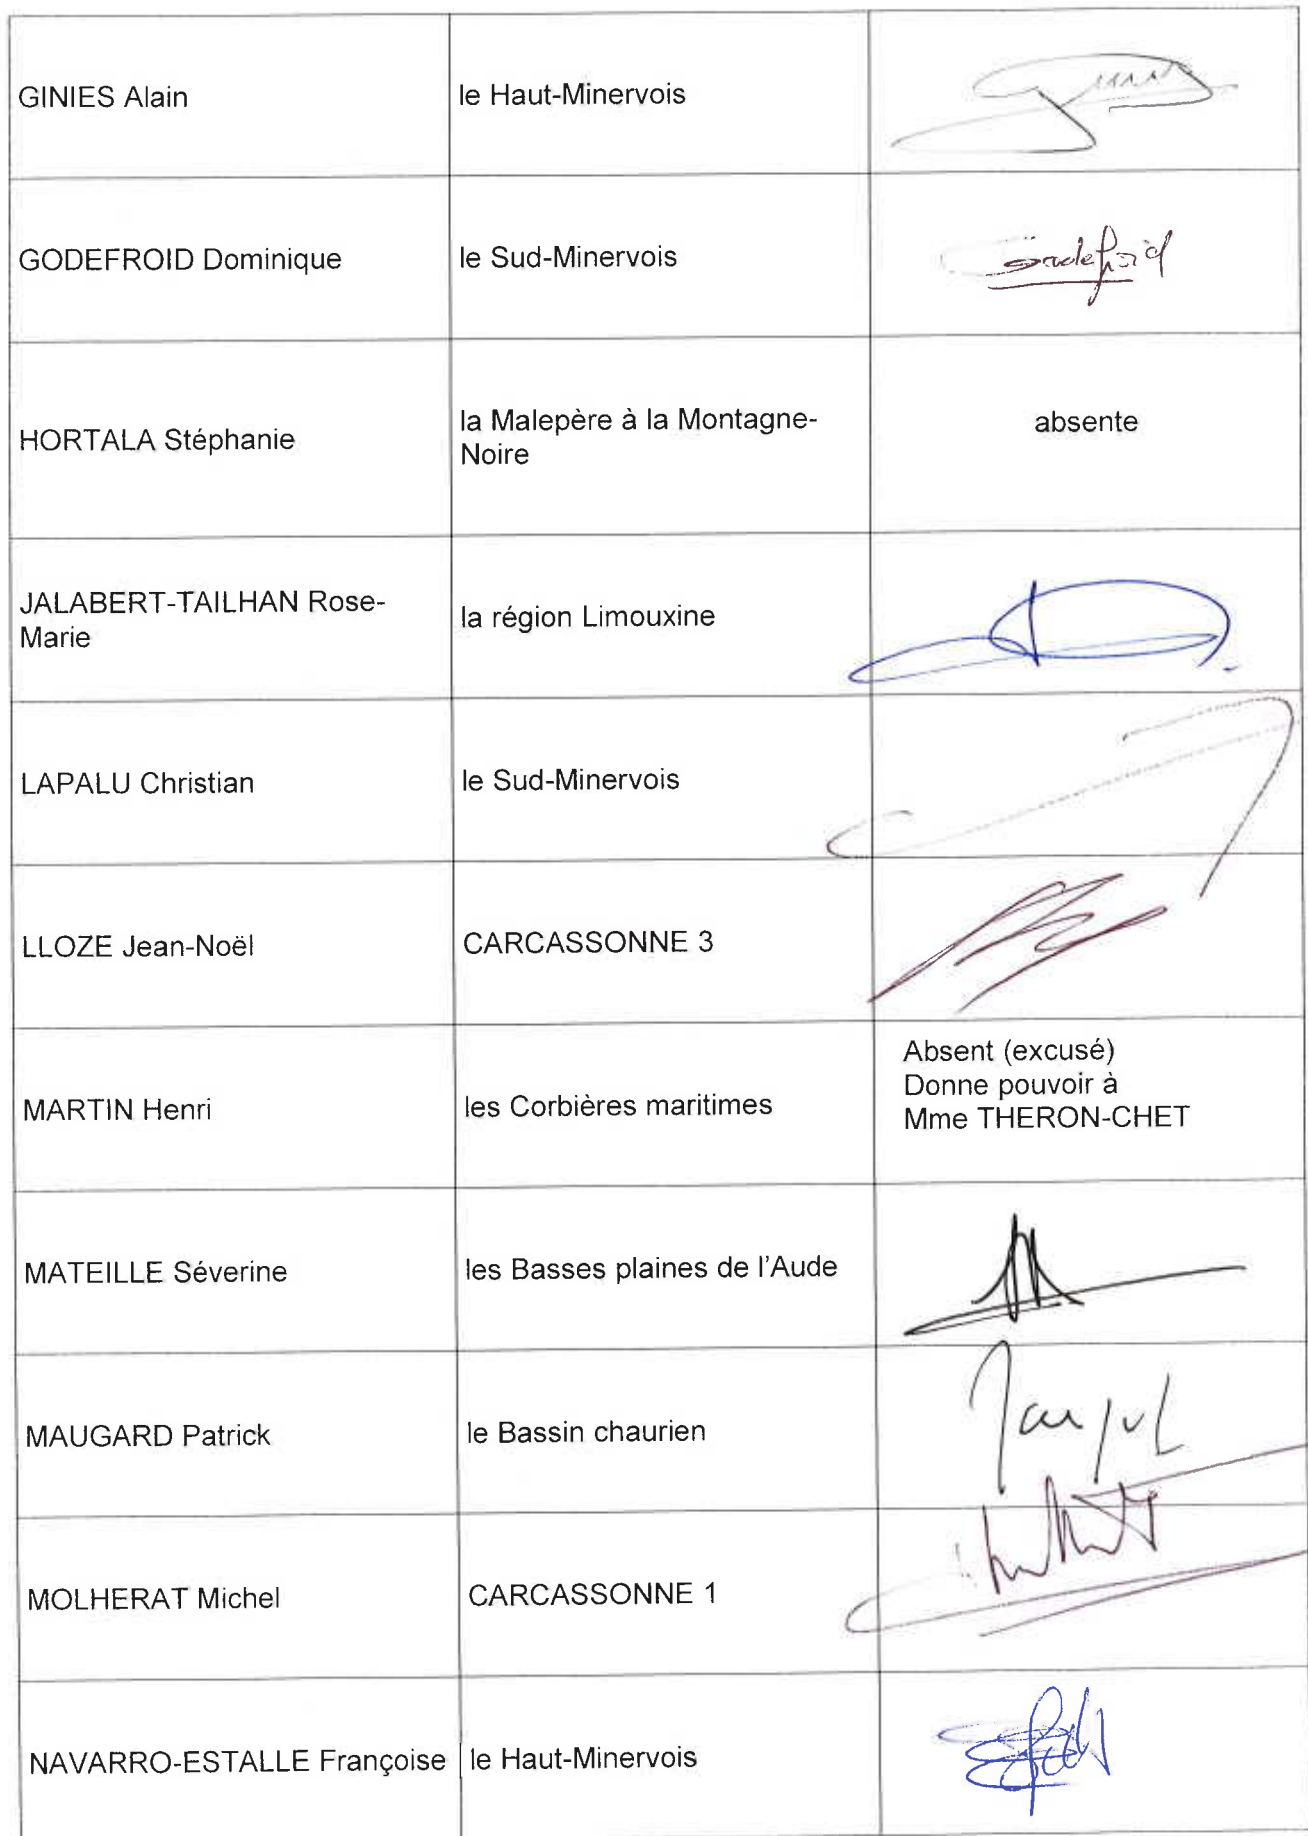 GINIES Alain
le Haut-Minervois
GODEFROID Dominique
le Sud-Minervois
Godefroid
HORTALA Stéphanie
la Malepère à la Montagne-
Noire
absente
JALABERT-TAILHAN Rose-
Marie
la région Limouxine
LAPALU Christian
le Sud-Minervois
LLOZE Jean-Noël
CARCASSONNE 3
MARTIN Henri
les Corbières maritimes
Absent (excusé)
Donne pouvoir à
Mme THERON-CHET
MATEILLE Séverine
les Basses plaines de l'Aude
MAUGARD Patrick
le Bassin chaurien
MOLHERAT Michel
CARCASSONNE 1
NAVARRO-ESTALLE Françoise
le Haut-Minervois